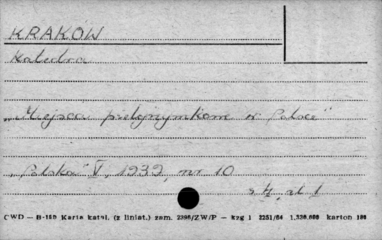 KRAKÓW
Katedra
"Miejsca pielgrzymkowe w Polsce"
"Polska" V, 1939, nr 10
s. 4, il. 1
CWD — B-159 Karta katal. (z liniat.) zam. 2398/ZW/P — kzg 1 2251/64 1,330,000 karton 180